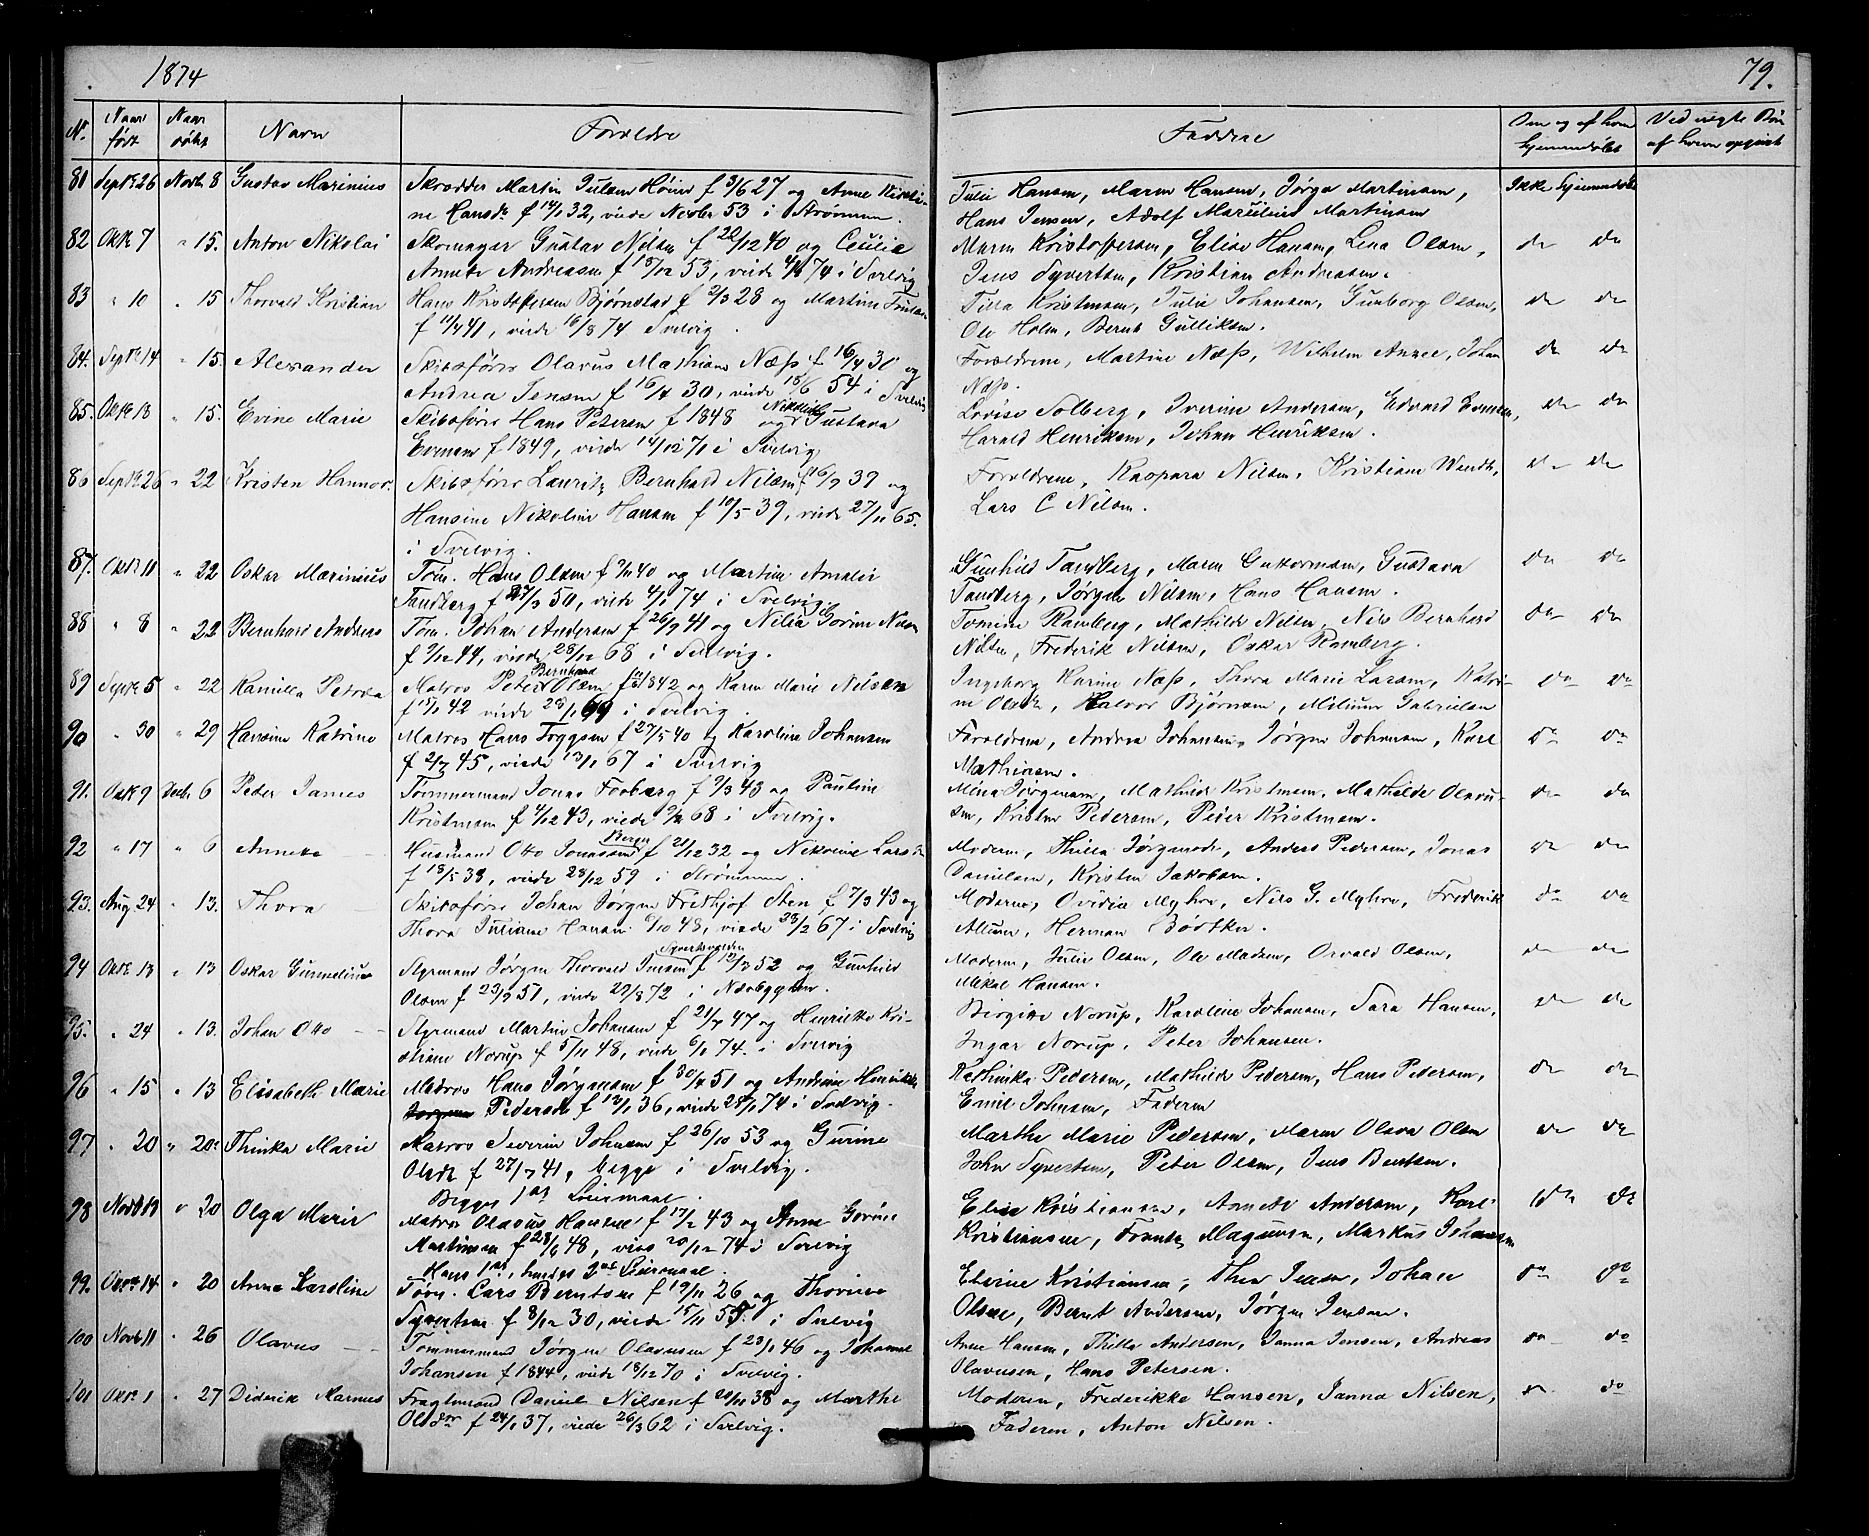 1874
79.
N. Naar født Naar døbt Navn Forældre Faddere Om og af hvem hjemmedøbt Ved uægte Børn af hvem opgivet
81 Septb. 26 Novb. 8 Gustav Marinius Skrædder Martin Julsen f 3/6 27 og Anne Kirsti-
ne Hansdr f 14/1 32, viede Novbr 53 i Strømmen.
Julie Hansen, Maren Hansen, Jørga Martinsen, Ikke hjemmedøbt
Hans Jensen, Adolf Marelius Martinsen
82 Oktb 7 " 15. Anton Nikolai Skomager Gustav Nilsen f 20/12 40 og Cecilie
Annette Andreasen f 15/12 53, viede 74 i Svelvig
Maren Kristoffersen, Elise Hansen, Lena Olsen, do do
Jens Syvertsen, Kristian Andreasen.
83 " 10 " 15 Thorvald Kristian Hans Kristoffersen Bjørnstad f 2/3 28 og Martine
f 11/4 41, viede 16/8 74 Svelvig.
Tilla Kristensen, Julie Johansen, Gunborg Olsen, do do
Ole Holm, Bernt Gulliksen.
84. Septb 14 " 15 Alexander Skibsfører Olavus Mathias Næss f 16/4 30 og
Andrea Jensen f 16/4 30, viede 15/6 54 i Svelvig
Forældrene, Martine Næss, Wilhelm, Johan do do
Næss.
85. Oktb 13 " 15. Evine Marie Skibsfører Hans Petersen f 1848 og Gustava
Evensen f 1849, viede 14/12 71 i Svelvig
Lovise Solberg, Iverine Andersen, Edvard Evensen, do do
Harald Henriksen, Johan Henriksen.
86 Septb. 26 " 22 Kristen Skibsfører Lauritz Bernhard Nilsen f 16/9 39 og
Hansine Nikoline Hansen f 10/5 39, viede 27/11 65.
i Svelvig.
Forældrene, Kaspara Nilsen, Kristiane Wendt, do do
Lars C Nilsen.
87. Oktb 11 " 22 Oskar Marinius Tøm. Hans Olsen f 9/11 40 og Martine Amalie
Tandberg f 27/3 50, viede 4/1 74 i Svelvig
Gunhild Tandberg, Maren Guttormsen, Gustava do do
Tandberg, Jørgen Nilsen, Hans Hansen.
88 " 8 " 22 Bernhard Andreas Tøm. Johan Andersen f 26/9 41 og Nilia Gorine Nilsen
f 9/12 44, viede 28/12 68 i Svelvig.
Tomine Ramberg, Mathilde Nilsen, Nils Bernhard do do
Nilsen, Frederik Nilsen, Oskar Ramberg.
89 Septb 5 " 22 Kamilla Petrea Matros Peter Bernhard Olsen f 1842 og Karen Marie Nilsen
f 15/1 42 viede 28/1 i Svelvig.
Ingeborg Karine Næss, Thora Marie Larsen, Katri- do do
ne Olsdr, Halvor Bjørnsen, Milium Gabrielsen
90 " 30 " 29 Hansine Katrine Matros Hans f 27/5 40 og Karoline Johansen
f 2/7 45, viede 13/1 67 i Svelvig
Forældrene, Andrea Johansen, Jørgen Johansen, Karl do do
Mathiasen.
91. Oktb 9 Decb. 6 Peder James Tømmermand Jonas Forberg f 9/3 43 og Pauline
Kristensen f 4/12 43, viede 68 i Svelvig.
Mina Jørgensen, Mathilde Kristensen, Mathilde Olavu- do do
sen, Kristen Pedersen, Peder Kristensen.
92 " 17 " 6 Annette Husmand Otto Jonassen Berger f 21/12 32 og Nikoline Larsdr
f 18/5 38, viede 28/12 59 i Strømmen.
Moderen, Thilla Jørgensdr, Anders Pedersen, Jonas do do
Danielsen, Kristen Jakobsen.
93. Aug 24 " 13. Thora Skibsfører Johan Jørgen Frithjof Sten f 7/3 43 og
Thora Juliane Hansen 6/10 48, viede 28/2 67 i Svelvig
Moderen, Ovidia Myhre, Nils G. Myhre, Frederik do do
Herman Bødtker.
94 Oktb 13 " 13 Oskar Gunnelius Styrmand Jørgen Thorvald Jensen f 12/3 52 og Gunhild
Olsen f 23/9 51, viede 29/8 72 i Næsbygden.
Moderen, Julie Olsen, Ole Madsen, Osvald Olsen, do do
Mikal Hansen.
95. " 24 " 13. Johan Otto Styrmand Martin Johansen f 21/7 47 og Henriette Kri-
stiane Norup f 5/11 48, viede 6/1 74. i Svelvig
Birgitte Norup, Karoline Johansen, Sara Hansen, do do
Ingar Norup, Peter Johansen.
96 " 15 " 13 Elisabeth Marie Matros Hans Jørgensen f 30/4 51 og Andrine
Pedersen f 12/1 36, viede 28/1 74 i Svelvig.
Kathinka Pedersen, Mathilde Pedersen, Hans Pedersen, do do
Emil Johnsen, Faderen
97 " 20 " 20. Thinka Marie Matros Severin Johnsen f 26/10 53 og Gurine
Olsdr f 27/7 41, begge i Svelvig.
Begges 1st Leiermaal.
Marthe Marie Pedersen, Maren Olava Olsen do do
John Syvertsen, Peter Olsen, Jens Bentsen.
98 Novb 13 " 20 Olga Marie Matros Olavus Hansen f 17/2 43 og Anne Gorine
Martinsen f 28/6 48, viede 20/12 74 i Svelvig
Hans 1st, hendes 2det Leiermaal.
Elise Kristiansen, Annette Andersen, Karl do do
Kristiansen, Frantz Magnusen, Markus Johansen
99. Oktb 14 " 20 Anna Karoline Tøm. Lars Berntsen f 19/11 26 og Thorine
Syvertsen f 8/12 30, viede 15/11 55. i Svelvig
Elverine Kristiansen, Thea Jensen, Johan do do
Olsen, Bernt Andersen, Jørgen Jensen.
100 Novb 11 " 26 Olavus Tømmermand Jørgen Olavusen f 23/1 46 og Johanne
Johansen f 1844, viede 18/12 70 i Svelvig.
Anne Hansen, Thilla Andersen, Janna Jensen, Andreas do do
Olavusen, Hans Petersen.
101 Oktb. 1 " 27 Diderik Marines Fragtmand Daniel Nilsen f 20/11 38 og Marthe
Olsdr f 24/1 37, viede 26/3 62 i Svelvig.
Moderen, Frederikke Hansen, Janna Nilsen, do do
Faderen, Anton Nilsen.